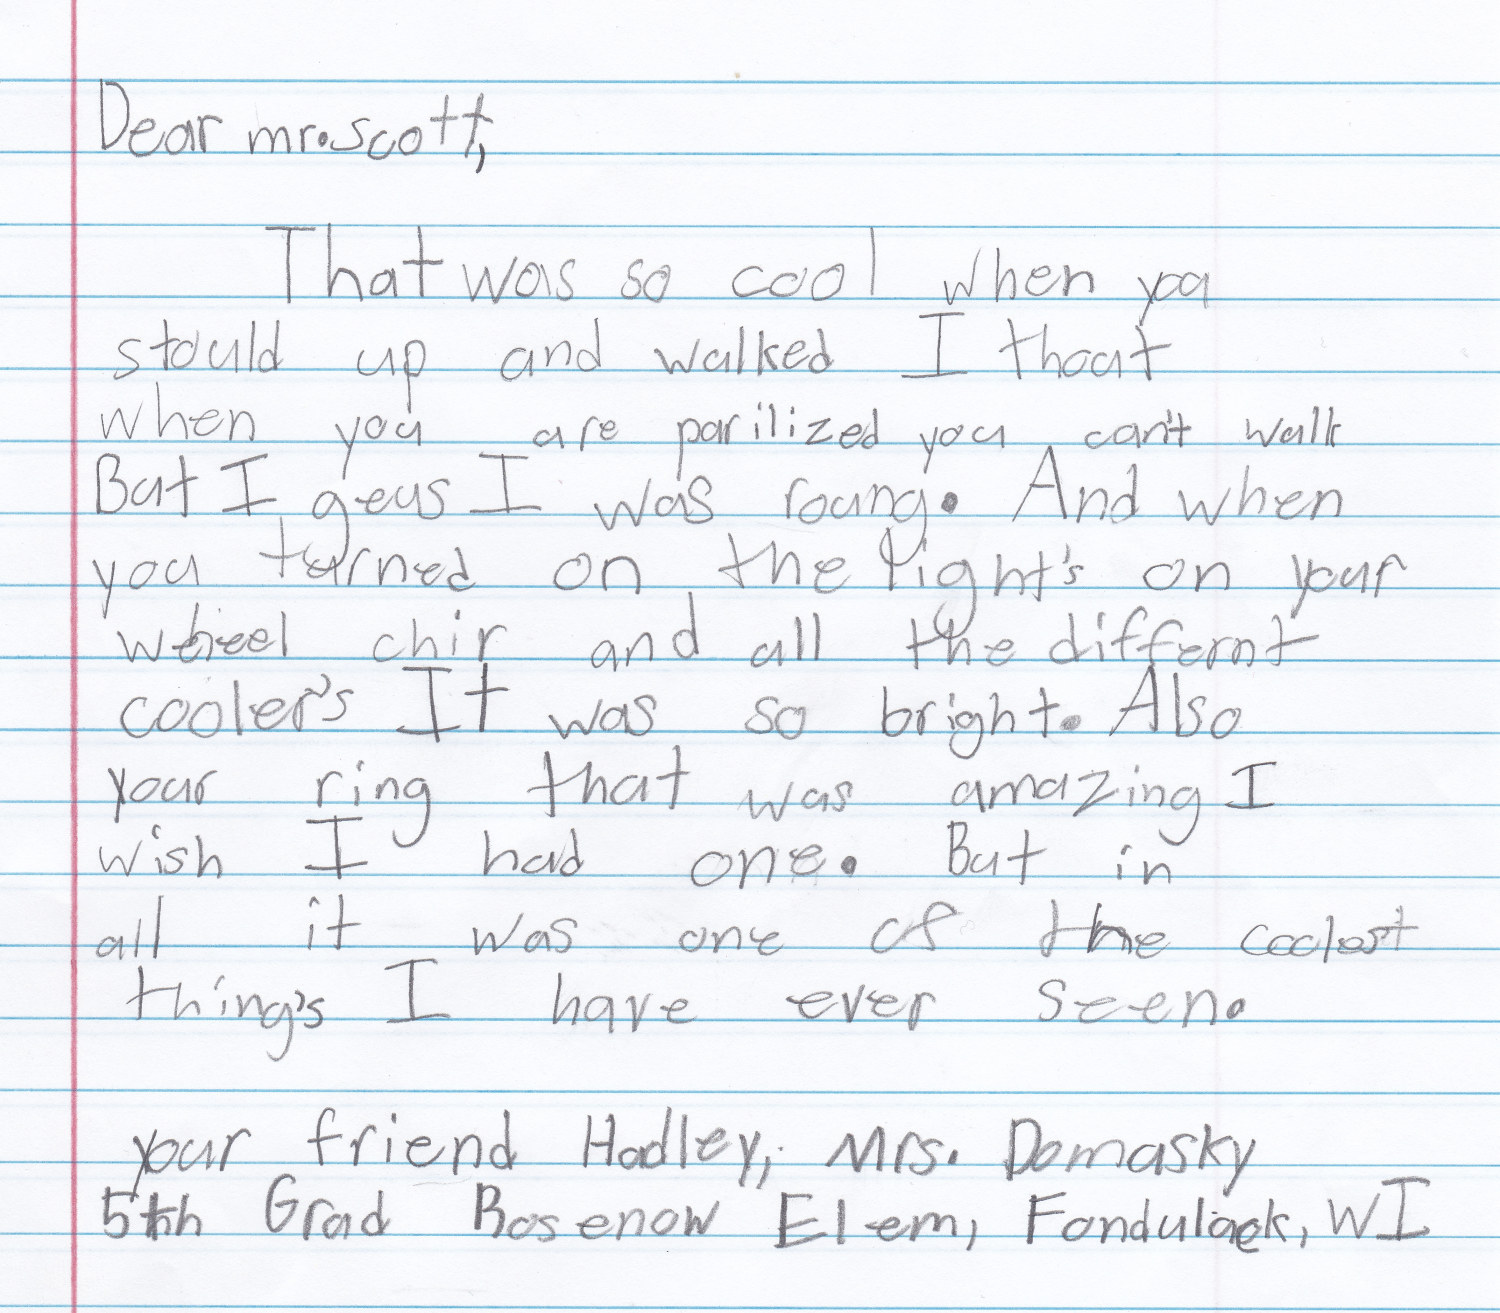 Dear mr.scott,
That was so cool when you
stould up and walked I thoat
when you are parilized you can't walk
But I geus I was roung. And when
you turned on the light's on your
wheel chir and all the differnt
cooler's It was so bright. Also
your ring that was amazing I
wish I had one. But in
all it was one of the coolest
thing's I have ever seen.
your friend Hadley, Mrs. Domasky
5th Grad Rosenow Elem, Fondulack, WI